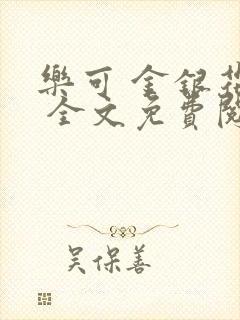 樂可 金銀花
全文免費閱
吳保善